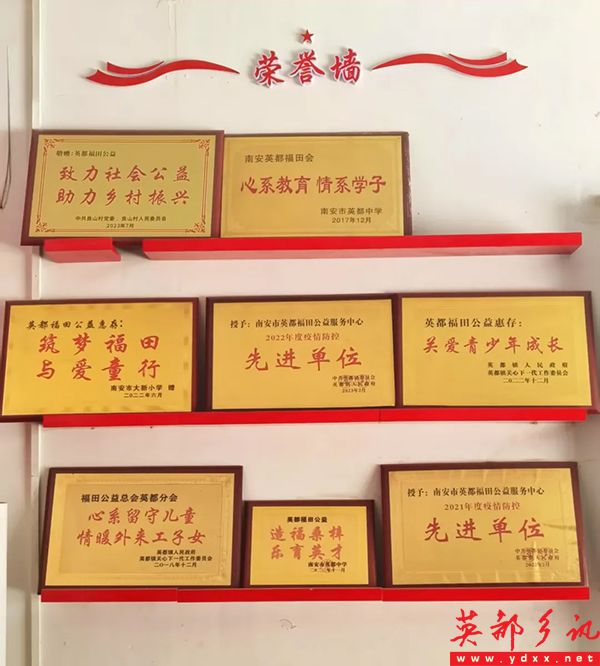 荣誉墙
敬赠:英都福田公益
致力社会公益
助力乡村振兴
中共良山村党委、良山村人民委员会
2023年7月
南安英都福田会
心系教育 情系学子
南安市英都中学
2017年12月
英都福田公益惠存:
筑梦福田
与爱童行
南安市大新小学 赠
二〇二二年六月
授予:南安市英都福田公益服务中心
2022年度疫情防控
先进单位
英都福田公益惠存:
关爱青少年成长
英都镇人民政府
英都镇关心下一代工作委员会
二〇二二年十二月
福田公益总会英都分会
心系留守儿童
情暖外来工子女
英都镇人民政府
英都镇关心下一代工作委员会
二〇一八年十二月
英都福田公益
造福桑梓
乐育英才
南安市英都中学
授予:南安市英都福田公益服务中心
2021年度疫情防控
先进单位
英都乡讯
www.ydxx.net